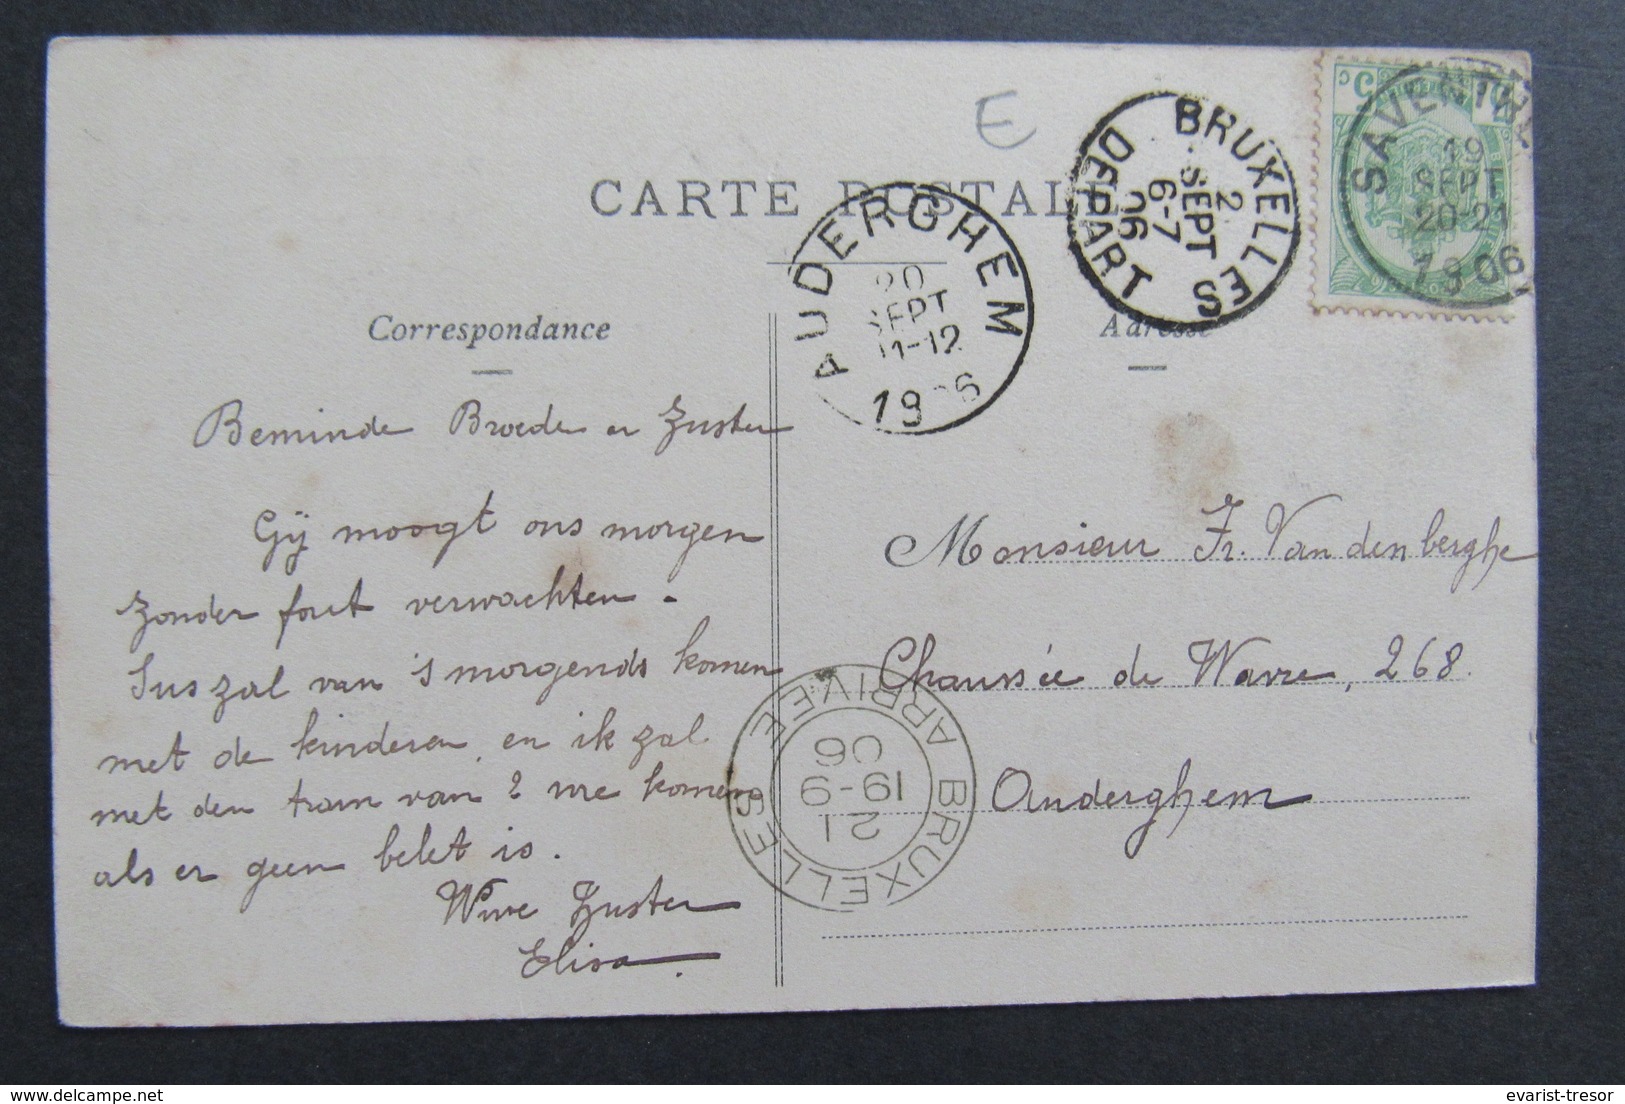 E
CARTE POSTALE
Correspondance
Adresse
Beminde Broeder en Zuster
Gij moogt ons morgen
zonder fout verwachten.
Sus zal van 's morgends komen
met de kinderen en ik zal
met den tram van 2 ure komen
als er geen belet is.
Uwe Zuster
Elisa.
Monsieur Fr. Vandenberghe
Chaussée de Wavre, 268.
Auderghem
AUDERGHEM
20
SEPT
11-12
1906
BRUXELLES
2
SEPT
6-7
06
DEPART
SAVENTHEM
19
SEPT
20-21
1906
BRUXELLES ARRIVEE
21
19-9
06
https://www.delcampe.net
evarist-tresor